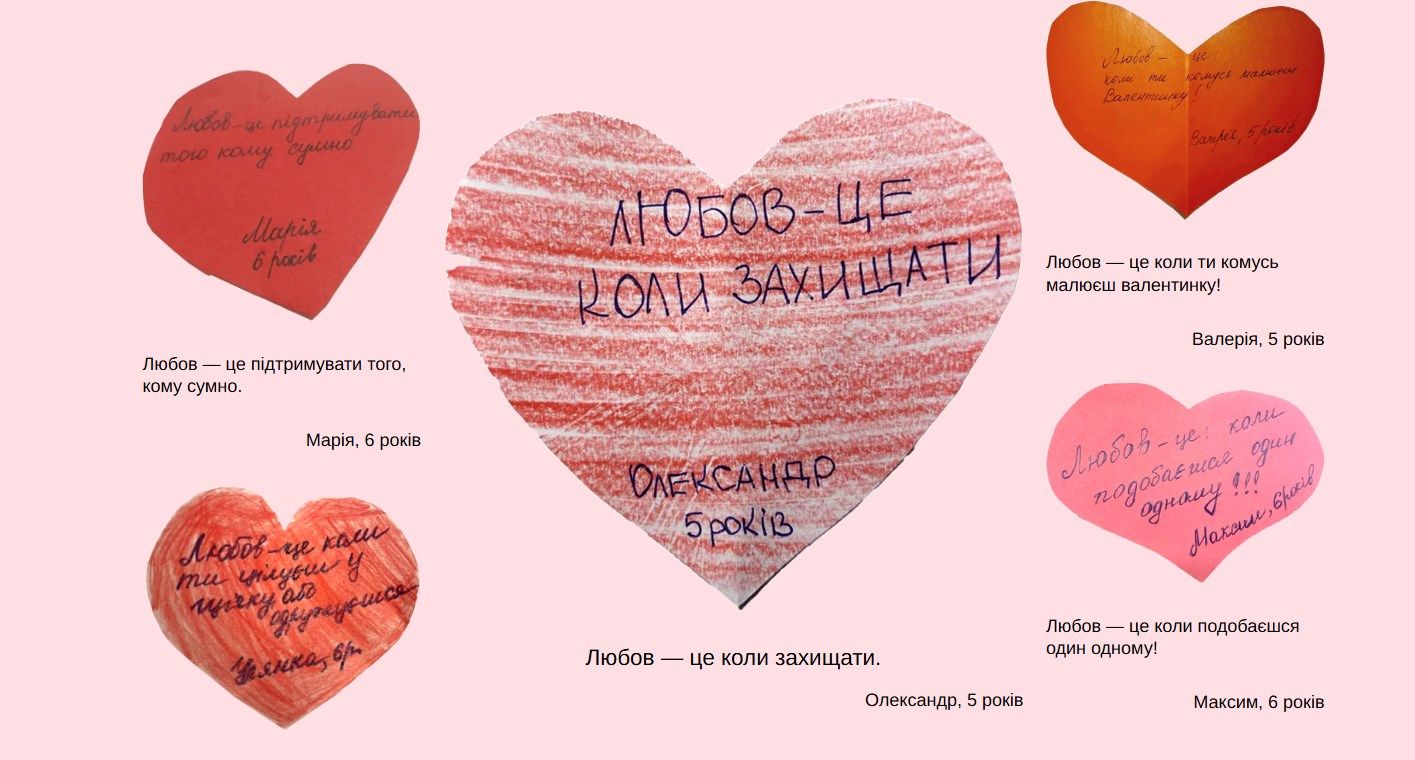 Любов-це підтримувати
того кому сумно
Марія
6 років
Любов — це підтримувати того,
кому сумно.
Марія, 6 років
Любов-це коли
ти цілуєш у
щічку або
одружуєшся
Уляна, 6р.
ЛЮБОВ-ЦЕ
КОЛИ ЗАХИЩАТИ
ОЛЕКСАНДР
5 років
Любов — це коли захищати.
Олександр, 5 років
Любов - це:
коли ти комусь малюєш
Валентинку!
Валерія, 5 років
Любов — це коли ти комусь
малюєш валентинку!
Валерія, 5 років
Любов-це: коли
подобаєшся один
одному !!!
Максим, 6 років
Любов — це коли подобаєшся
один одному!
Максим, 6 років